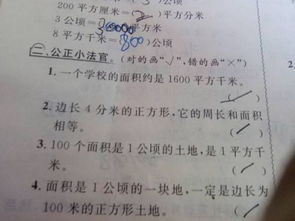 200平方厘米=(2)平方分米
3公顷=30000平方米
8平方千米=(800)公顷
二、公正小法官。(对的画“√”,错的画“×”)
1.一个学校的面积约是1600平方千米。
( √ )
2.边长4分米的正方形,它的周长和面积
相等。 ( √ )
3.100个面积是1公顷的土地,是1平方千
米。 ( √ )
4.面积是1公顷的一块地,一定是边长为
100米的正方形土地。 ( √ )